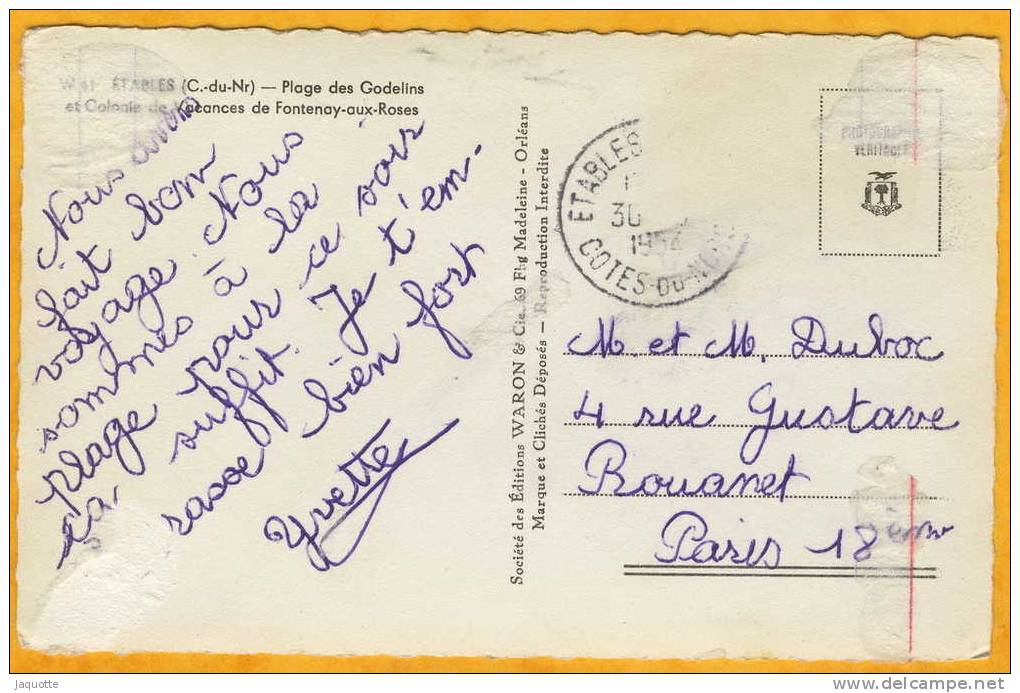 ÉTABLES (C.-du-Nr) — Plage des Godelins
et Colonie de Vacances de Fontenay-aux-Roses
Nous avons
fait bon
voyage. Nous
sommes à la
plage pour ce soir
ça suffit. Je t'em-
rasse bien fort
Yvette
Société des Éditions WARON & Cie., 69 Fbg Madeleine - Orléans
Marque et Clichés Déposés — Reproduction Interdite
ÉTABLES
30
195
COTES-DU-NORD
PHOTOGRAPHIE
VÉRITABLE
M. et M. Duboc
4 rue Gustave
Rouanet
Paris 18ème
Jaquotte
www.delcampe.net